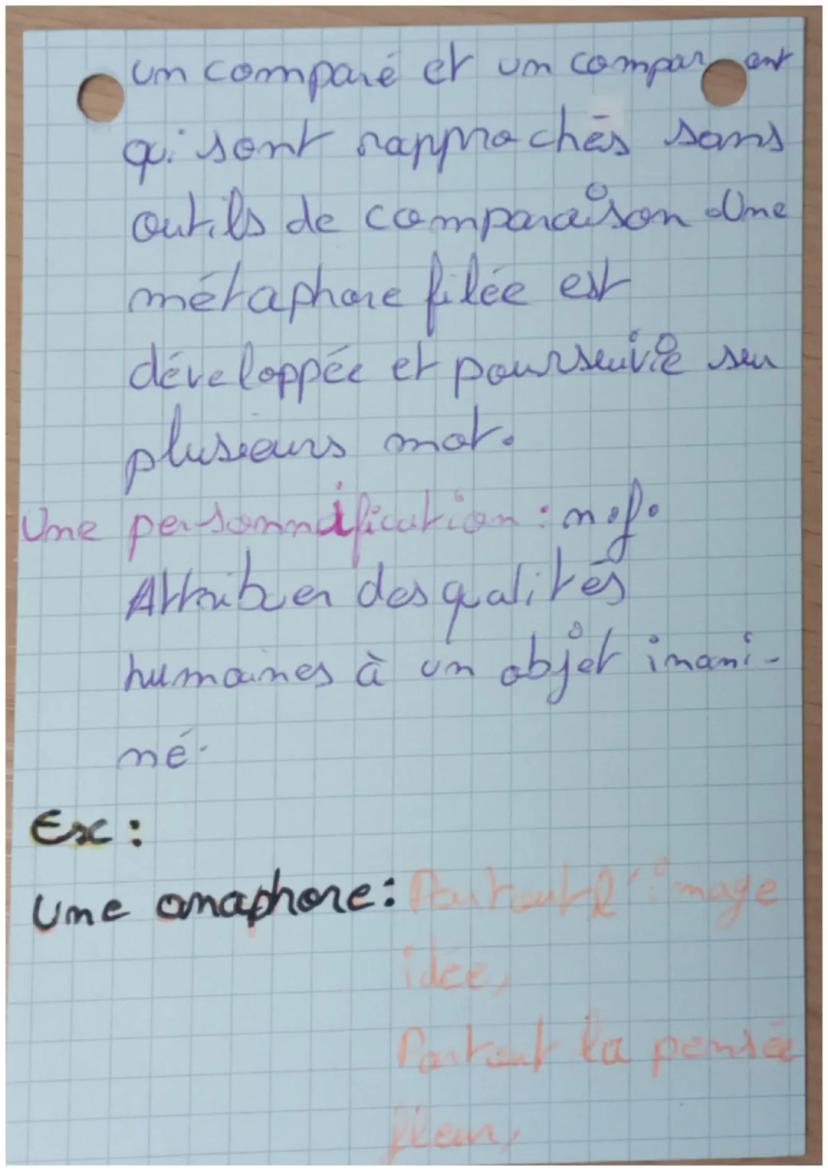 un comparé et un compar ant
qui sont rapprochés sans
outils de comparaison. Une
métaphore filée est
développée et pourseuivie sur
plusieurs mot.
Une personnification : n.f.
Attribuer des qualités
humaines à un objet inani-
mé.
Ex :
Une anaphore : Partout l'image
idée,
Partout la pensée
fleur,